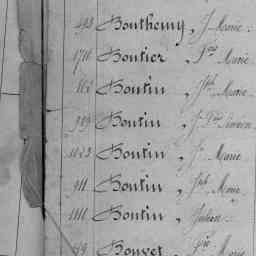 498 Bouthemy, J. Marie.
1710 Boutier, Frs Marie
162 Boutin, Jph Marie
989 Boutin, J. Frs
1123 Boutin, Jn Marie
911 Boutin, Jph Marie
1111 Boutin, Julien
Bouvet, Marie